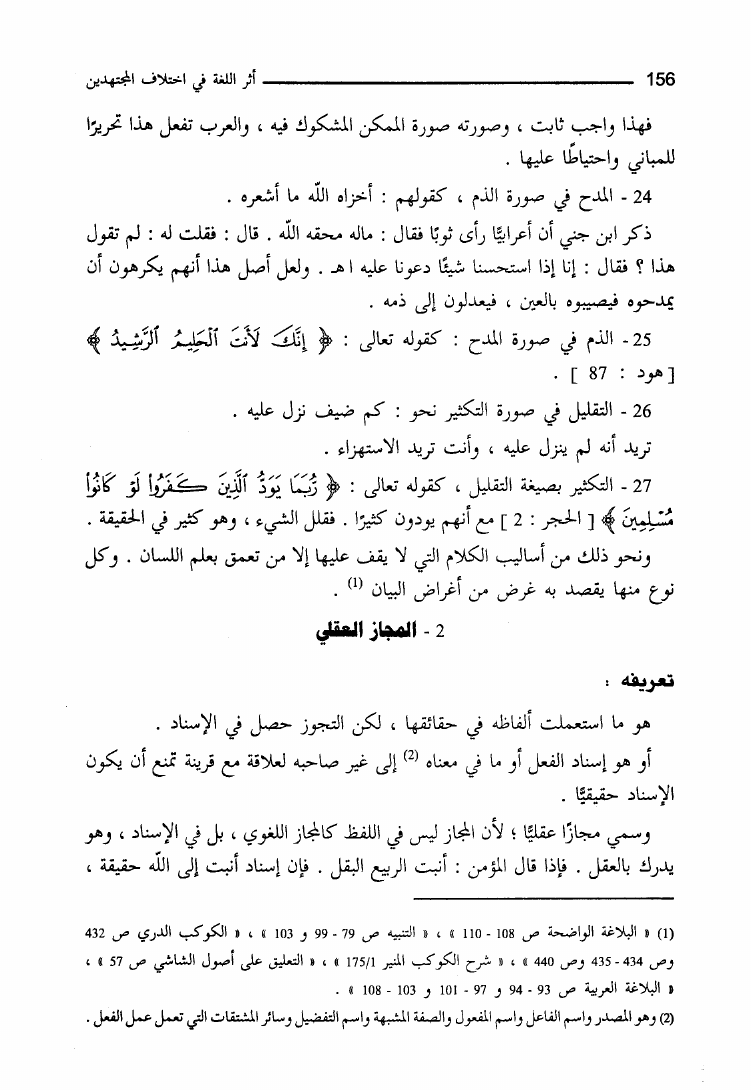 156 أثر اللغة في اختلاف المجتهدين
فهذا واجب ثابت ، وصورته صورة الممكن المشكوك فيه ، والعرب تفعل هذا تحريرًا
للمباني واحتياطًا عليها .
24 - المدح في صورة الذم ، كقولهم : أخزاه الله ما أشعره .
ذكر ابن جني أن أعرابيًّا رأى ثوبًا فقال : ماله محقه الله . قال : فقلت له : لم تقول
هذا ؟ فقال : إنا إذا استحسنا شيئًا دعونا عليه اهـ . ولعل أصل هذا أنهم يكرهون أن
يمدحوه فيصيبوه بالعين ، فيعدلون إلى ذمه .
25 - الذم في صورة المدح : كقوله تعالى : ﴿ إِنَّكَ لَأَنتَ ٱلْحَلِيمُ ٱلرَّشِيدُ ﴾
[ هود : 87 ] .
26 - التقليل في صورة التكثير نحو : كم ضيف نزل عليه .
تريد أنه لم ينزل عليه ، وأنت تريد الاستهزاء .
27 - التكثير بصيغة التقليل ، كقوله تعالى : ﴿ رُّبَمَا يَوَدُّ ٱلَّذِينَ كَفَرُوا۟ لَوْ كَانُوا۟
مُسْلِمِينَ ﴾ [ الحجر : 2 ] مع أنهم يودون كثيرًا . فقلل الشيء ، وهو كثير في الحقيقة .
ونحو ذلك من أساليب الكلام التي لا يقف عليها إلا من تعمق بعلم اللسان . وكل
نوع منها يقصد به غرض من أغراض البيان (1) .
2 - المجاز العقلي
تعريفه :
هو ما استعملت ألفاظه في حقائقها ، لكن التجوز حصل في الإسناد .
أو هو إسناد الفعل أو ما في معناه (2) إلى غير صاحبه لعلاقة مع قرينة تمنع أن يكون
الإسناد حقيقيًّا .
وسمي مجازًا عقليًّا ؛ لأن المجاز ليس في اللفظ كالمجاز اللغوي ، بل في الإسناد ، وهو
يدرك بالعقل . فإذا قال المؤمن : أنبت الربيع البقل . فإن إسناد أنبت إلى الله حقيقة ،
(1) « البلاغة الواضحة ص 108 - 110 » ، « التنبيه ص 79 - 99 و 103 » ، « الكوكب الدري ص 432
وص 434 - 435 وص 440 » ، « شرح الكوكب المنير 175/1 » ، « التعليق على أصول الشاشي ص 57 » ،
« البلاغة العربية ص 93 - 94 و 97 - 101 و 103 - 108 » .
(2) وهو المصدر واسم الفاعل واسم المفعول والصفة المشبهة واسم التفضيل وسائر المشتقات التي تعمل عمل الفعل .